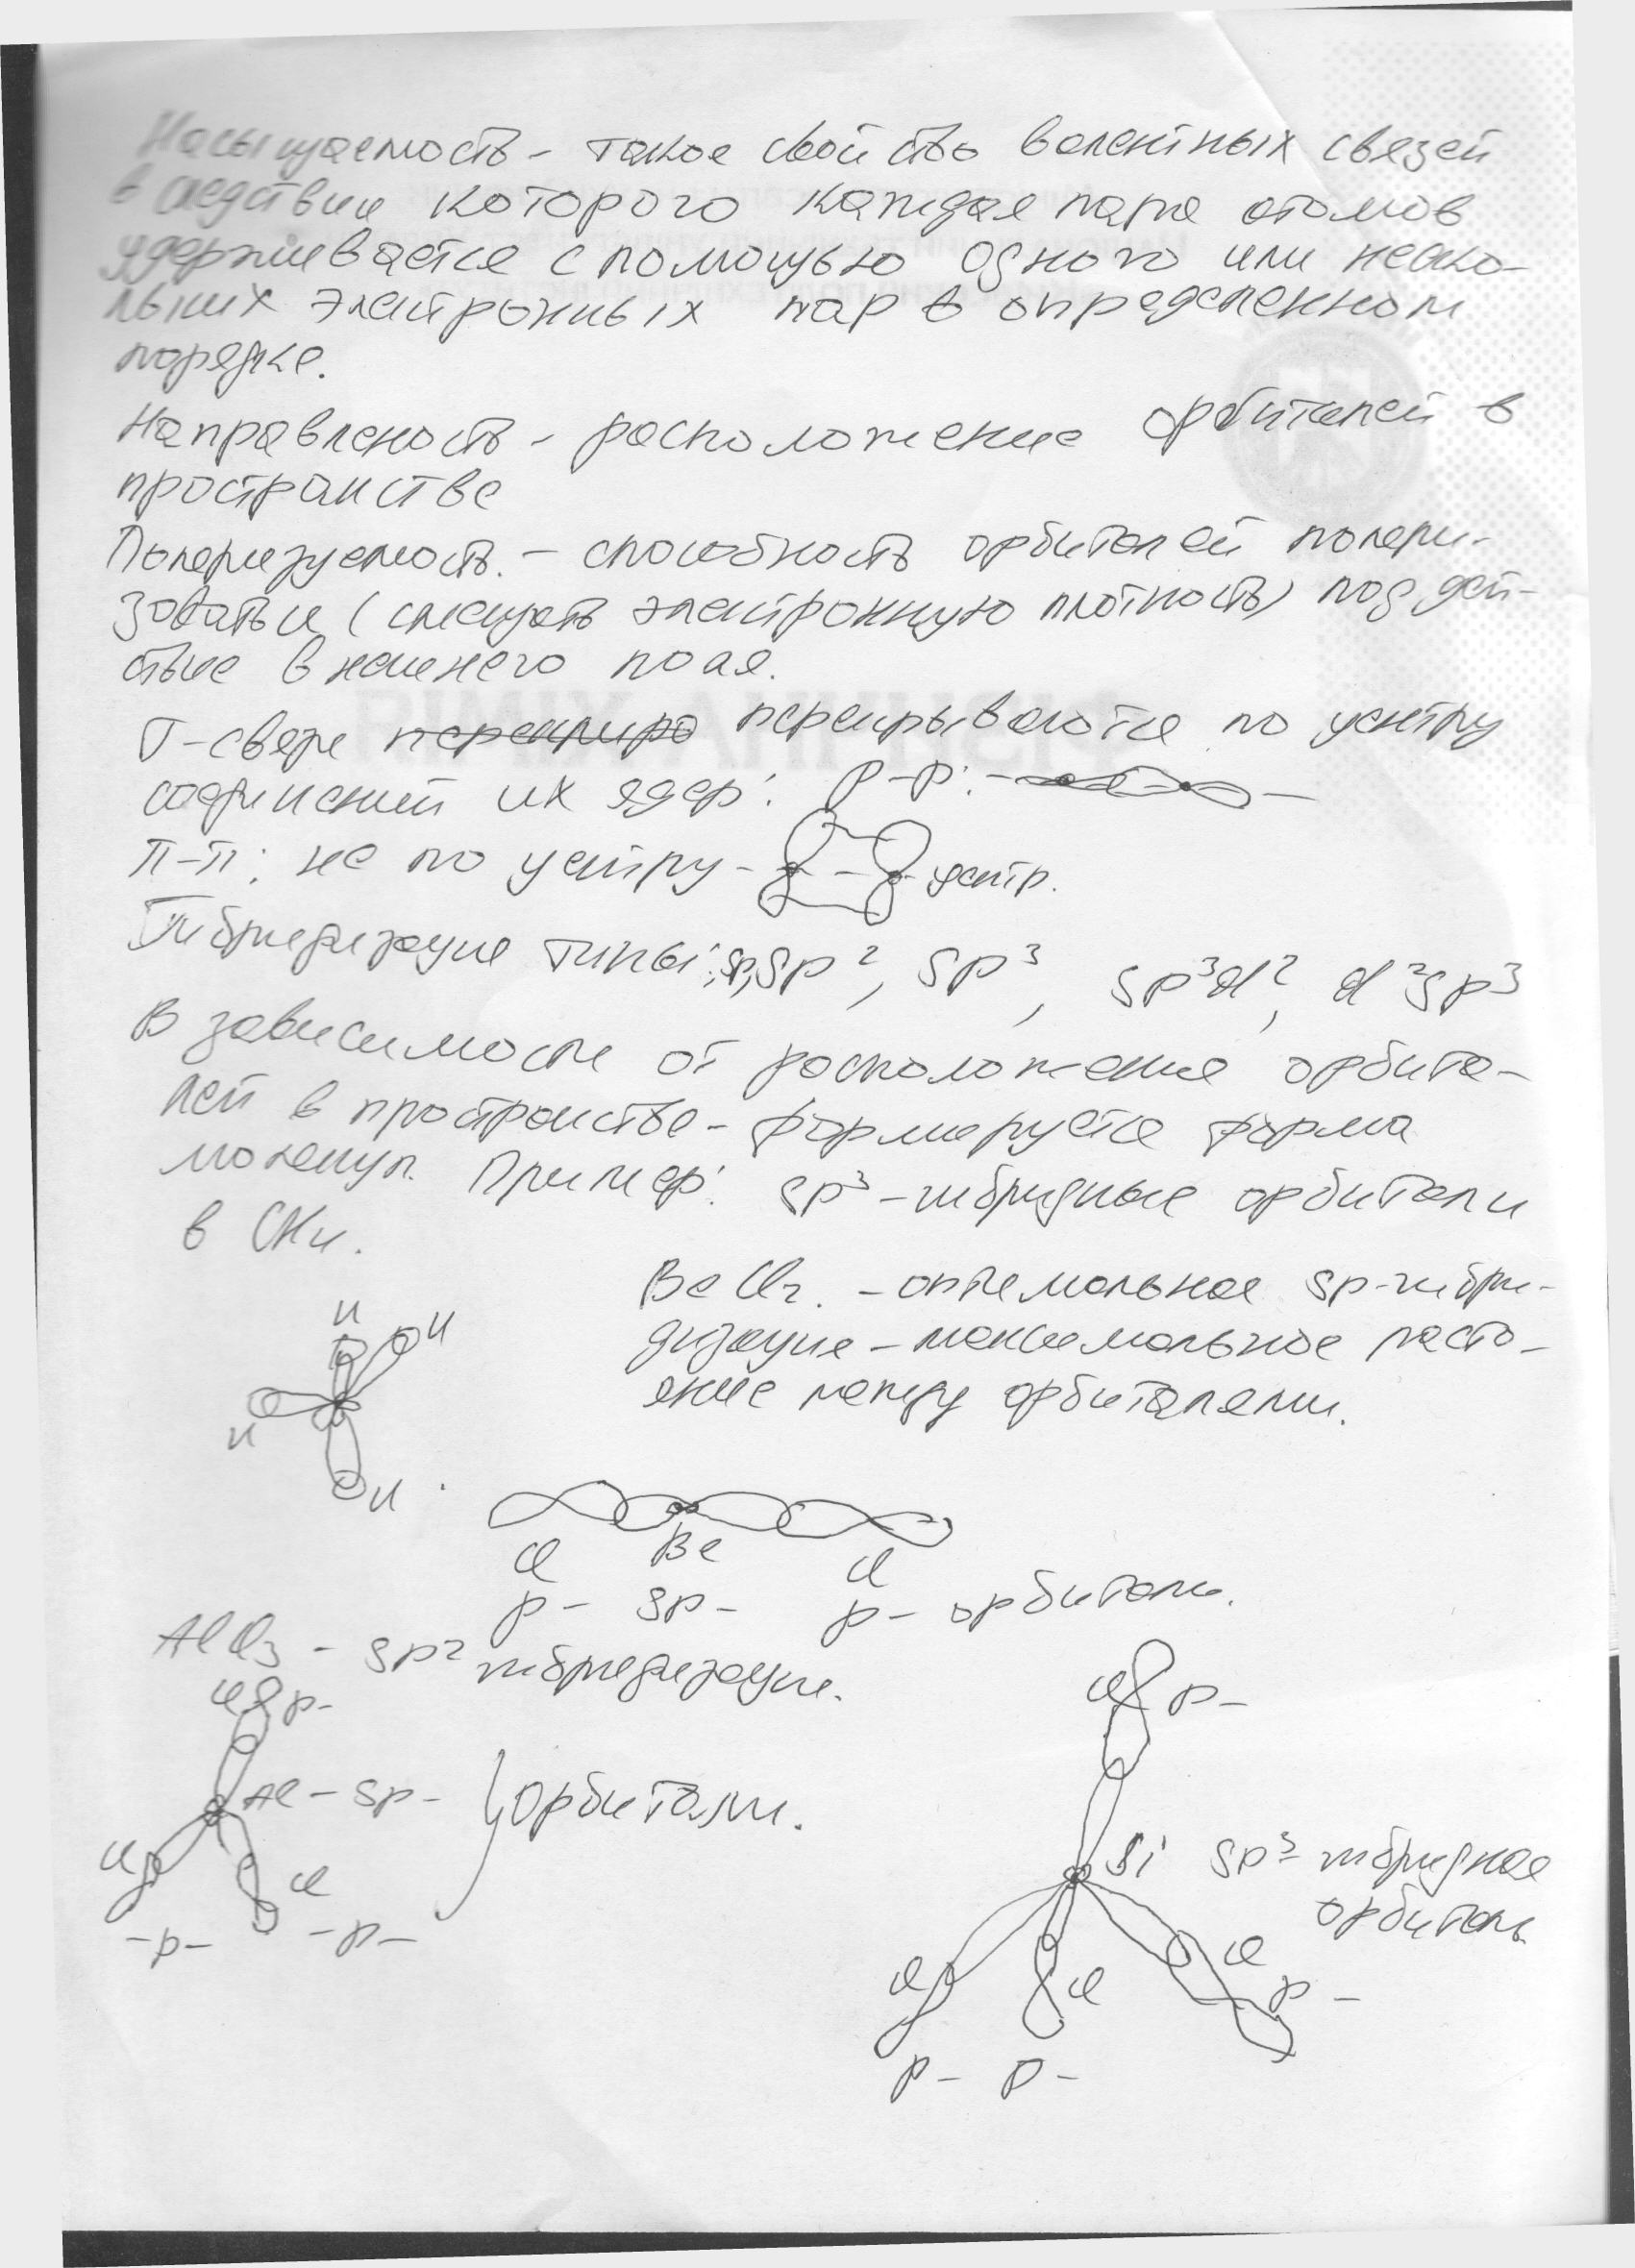 Насыщаемость - такое свойство валентных связей
в следствии которого каждая пара атомов
удерживается с помощью одного или неско-
льких электронных пар в определенном
порядке.
Направленость - расположение орбиталей в
пространстве
Поляризуемость. - способность орбиталей поляри-
зоваться (смещать электронную плотность) под дей-
ствие внешнего поля.
σ-связи перекрываются по центру
соединений их ядер: p-p: -
π-π: не по центру - центр.
Гибридизация типы: sp, sp², sp³, sp³d², d²sp³
В зависимости от расположения орбита-
лей в пространстве - формируется форма
молекул. Пример: sp³-гибридные орбитали
в CH₄.
BeCl₂. - оптимальная sp-гибри-
дизация - максимальное расто-
яние между орбиталями.
H
H
H
H
Cl Be Cl
p- sp- p- орбитали.
AlCl₃ - sp² гибридизация.
Cl p-
Al - sp- орбитали.
Cl Cl
-p- -p-
Cl p-
Si sp³- гибридная
орбиталь
Cl Cl Cl
p-
p- p-